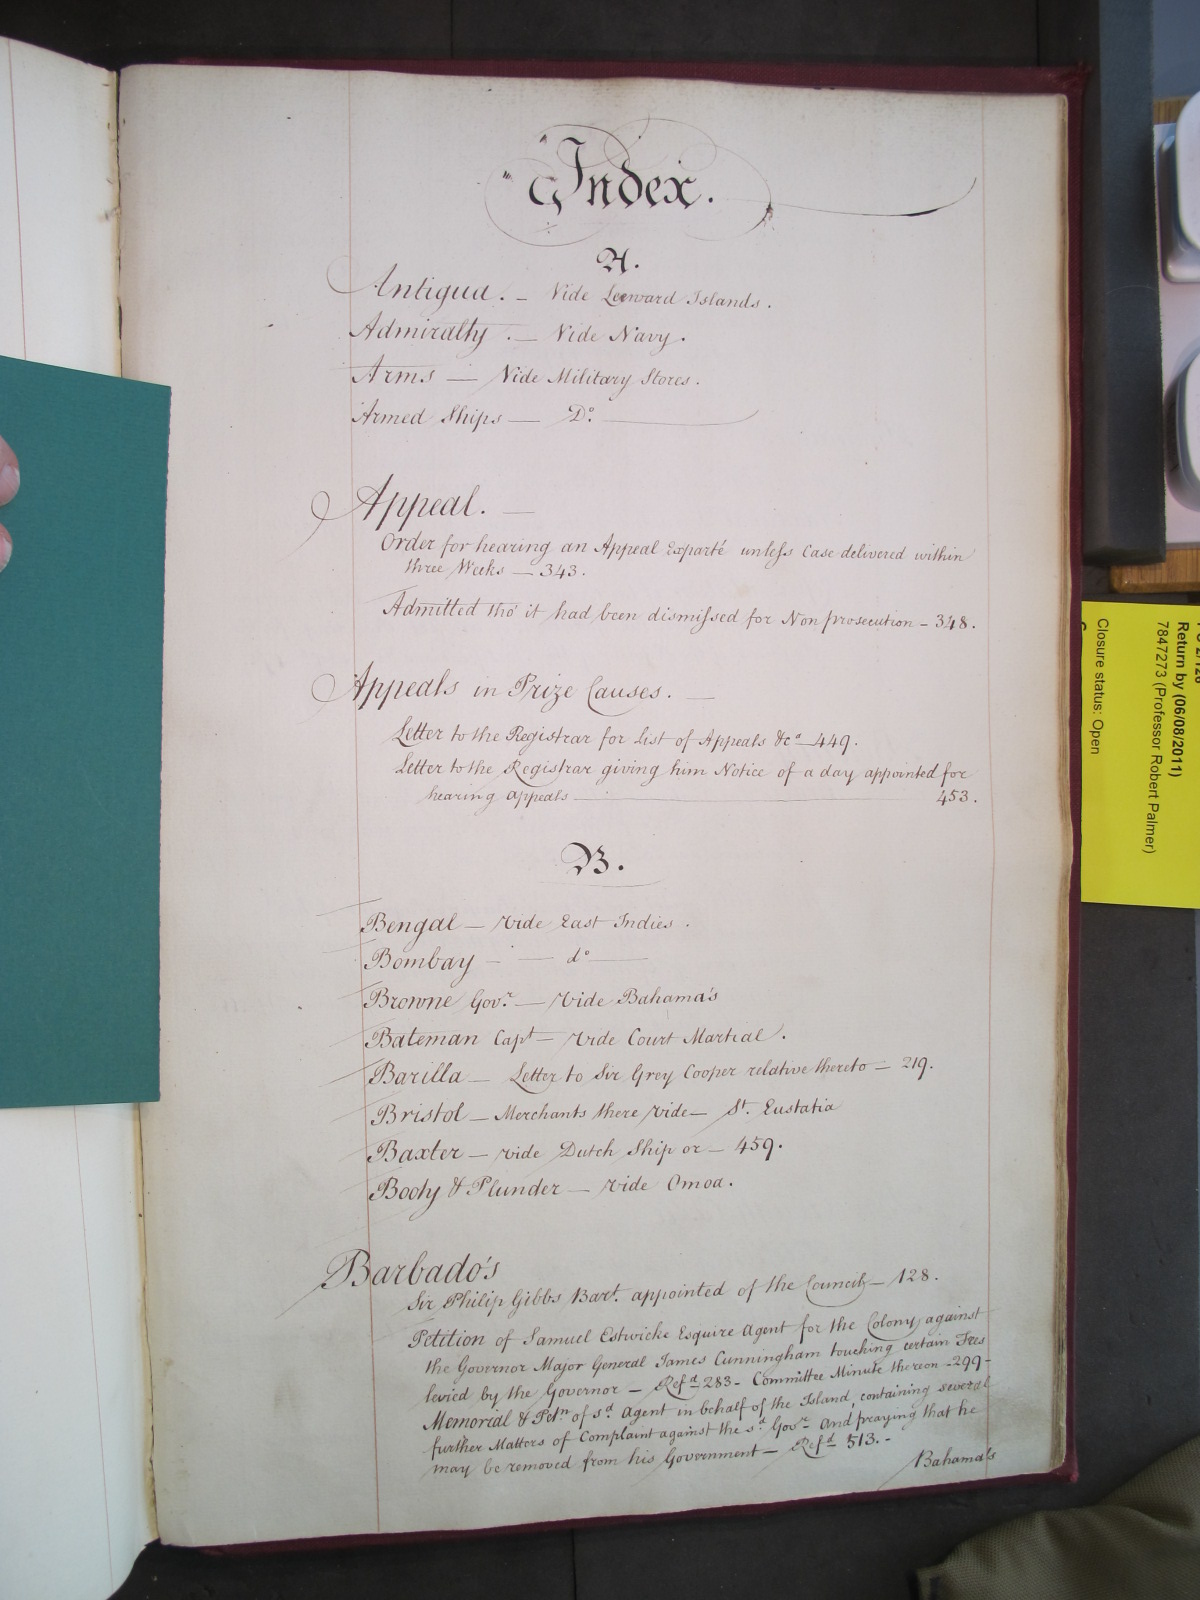 Index.
A.
Antigua. — Vide Leeward Islands.
Admiralty. — Vide Navy.
Arms — Vide Military Stores.
Armed Ships — Do.
Appeal. —
Order for hearing an Appeal Exparté unless Case delivered within
three Weeks — 343.
Admitted tho' it had been dismissed for Non prosecution — 348.
Appeals in Prize Causes. —
Letter to the Registrar for List of Appeals &ca — 449.
Letter to the Registrar giving him Notice of a day appointed for
hearing appeals — 453.
B.
Bengal — vide East Indies.
Bombay — do —
Browne Govr. — vide Bahama's
Bateman Capt — vide Court Martial.
Barilla — Letter to Sir Grey Cooper relative thereto — 219.
Bristol — Merchants there vide — St. Eustatia
Baxter — vide Dutch Ship or — 459.
Booty & Plunder — vide Omoa.
Barbado's
Sir Philip Gibbs Bart. appointed of the Council — 128.
Petition of Samuel Estwicke Esquire Agent for the Colony against
the Governor Major General James Cunningham touching certain Fees
levied by the Governor — Refd 283 - Committee Minute thereon - 299 -
Memorial & Petn. of sd. Agent in behalf of the Island, containing several
further Matters of Complaint against the sd. Govr. And praying that he
may be removed from his Government — Refd 513. -
Bahama's
Return by (06/08/2011)
7847273 (Professor Robert Palmer)
Closure status: Open